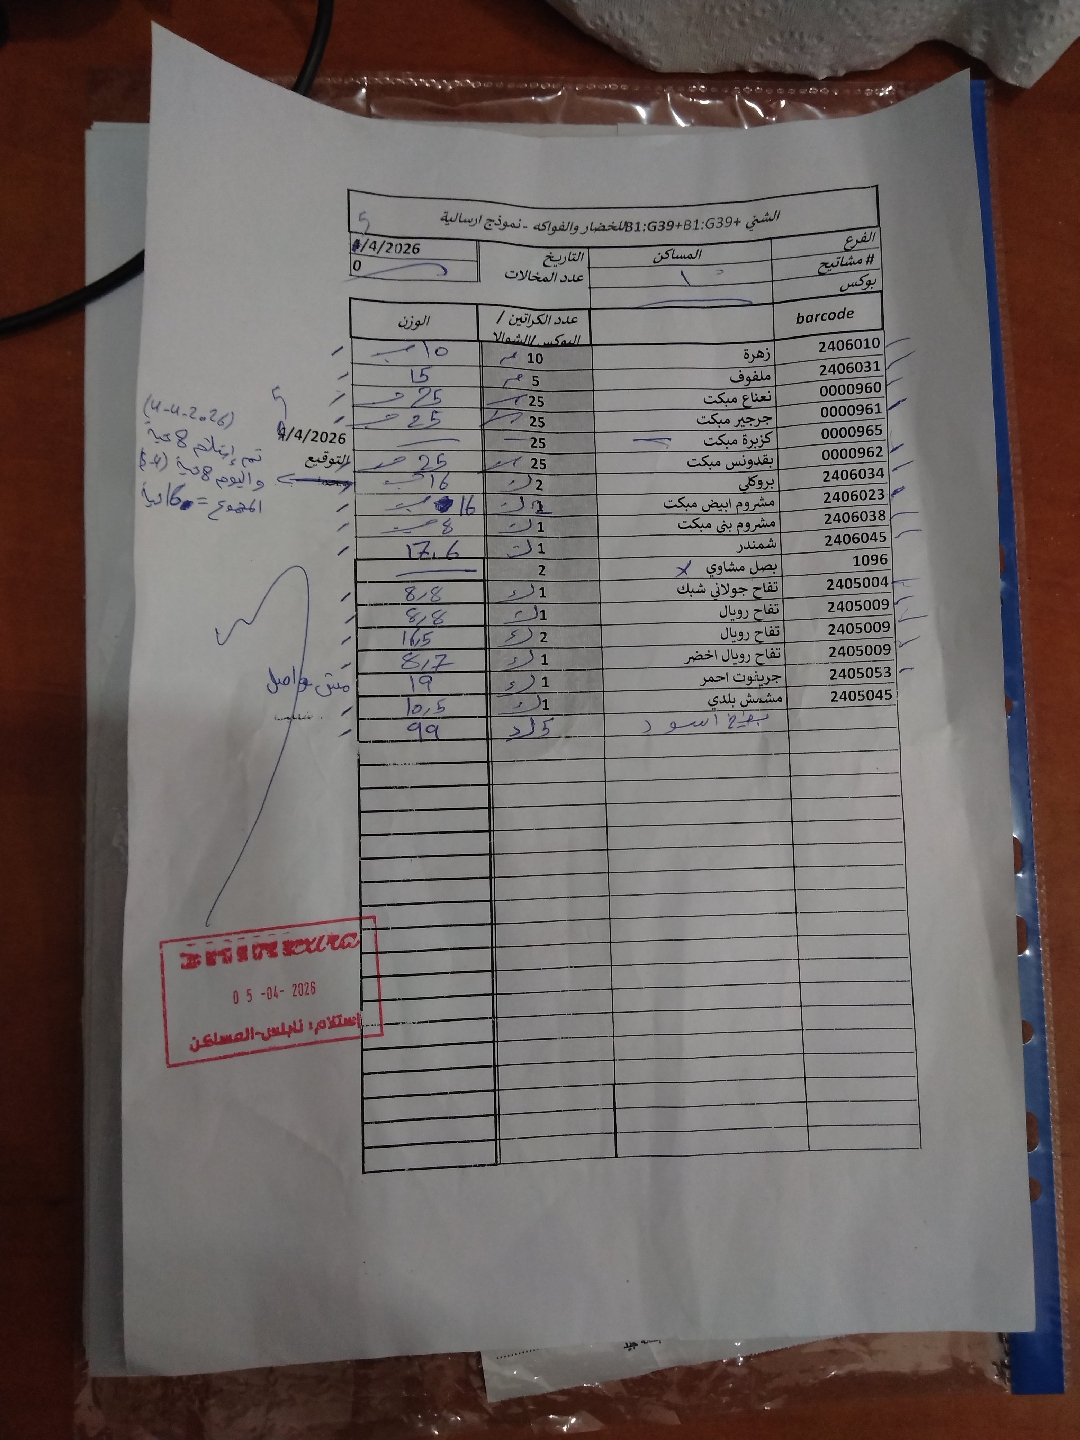 الشني +B1:G39+B1:G39للخضار والفواكه - نموذج ارسالية
الفرع المساكن التاريخ 4/4/2026 5
# مشاتيح ١ عدد المخالات 0
بوكس
barcode عدد الكراتين / البوكس/الشوالا الوزن
2406010 زهرة 10 ١٠
2406031 ملفوف 5 15
0000960 نعناع مبكت 25 25
0000961 جرجير مبكت 25 25
0000965 كزبرة مبكت 25
0000962 بقدونس مبكت 25 25
2406034 بروكلي 2 16
2406023 مشروم ابيض مبكت 16
2406038 مشروم بني مبكت 1 8
2406045 شمندر 1 17.6
1096 بصل مشاوي x 2
2405004 تفاح جولاني شبك 1 8,8
2405009 تفاح رويال 1 8,8
2405009 تفاح رويال 2 16,5
2405009 تفاح رويال اخضر 1 8,7
2405053 جريفوت احمر 1 19
2405045 مشمش بلدي 1 10,5
بطيخ اسود 5 99
4/4/2026
التوقيع
(4-4-2026)
تم إستلام 8 حبة
واليوم 8 حبة
المجموع = 16 حبة
مش واصل
05-04-2026
استلام: نابلس-المساكن